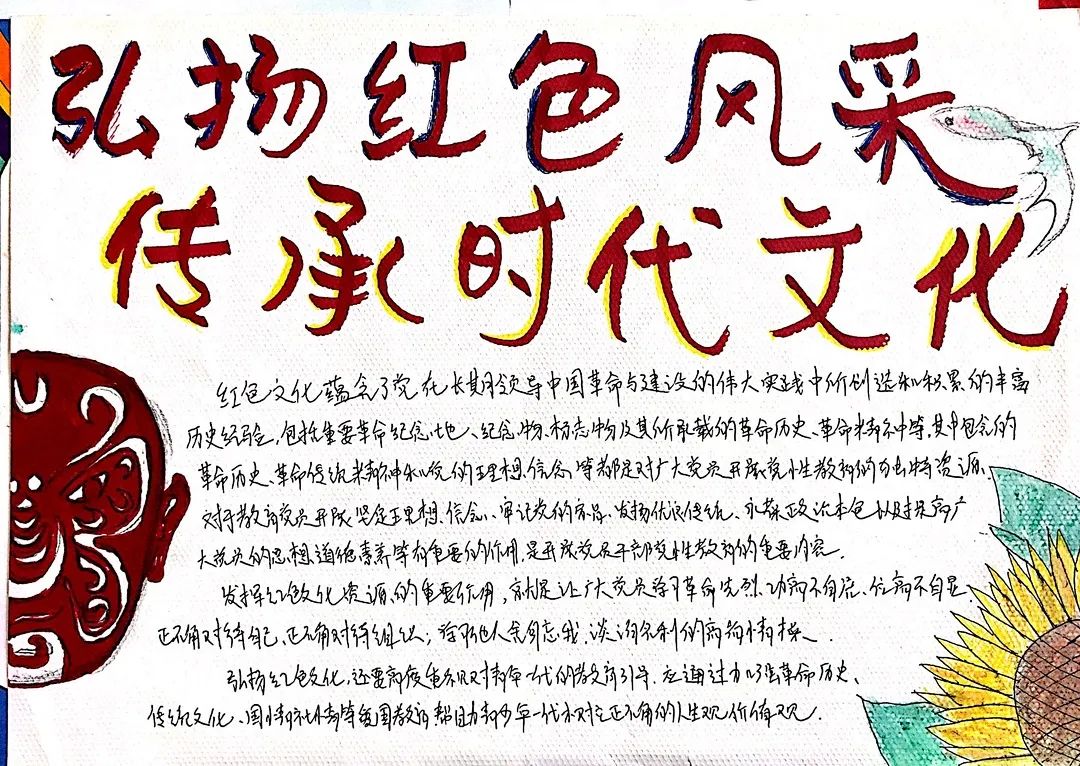 弘扬红色风采
传承时代文化
红色文化蕴含了党在长期领导中国革命与建设的伟大实践中所创造和积累的丰富
历史经验,包括重要革命纪念地、纪念物、标志物及其所承载的革命历史、革命精神等,其中包含的
革命历史、革命传统精神和党的理想信念等都是对广大党员开展党性教育的特资源、
对于教育党员开展坚定理想、信念、牢记党的宗旨、发扬优良传统、永葆政治本色以及提高广
大党员的思想道德素养等有重要的作用,是开展党员干部党性教育的重要内容.
发挥红色文化资源的重要作用,就是让广大党员学习革命先烈功高不自居、位高不自显、
正确对待自己、正确对待组织;
弘扬红色文化,还要高度重视对青年一代的教育引导.应通过加强革命历史、
传统文化、国情社情等爱国教育帮助青少年一代树立正确的人生观价值观.